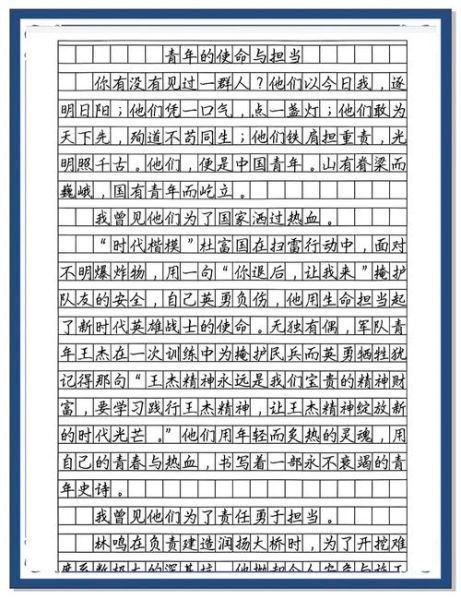 青年的使命与担当
你有没有见过一群人？他们以今日我，逐
明日阳；他们凭一口气，点一盏灯；他们敢为
天下先，殉道不苟同生；他们铁肩担重责，光
明照千古。他们，便是中国青年。山有脊梁而
巍峨，国有青年而屹立。
我曾见他们为了国家洒过热血。
“时代楷模”杜富国在扫雷行动中，面对
不明爆炸物，用一句“你退后，让我来”掩护
队友的安全，自己英勇负伤，他用生命担当起
了新时代英雄战士的使命。无独有偶，军队青
年王杰在一次训练中为掩护民兵而英勇牺牲犹
记得那句“王杰精神永远是我们宝贵的精神财
富，要学习践行王杰精神，让王杰精神绽放新
的时代光芒。”他们用年轻而炙热的灵魂，用
自己的青春与热血，书写着一部永不衰竭的青
年史诗。
我曾见他们为了责任勇于担当。
林鸣在负责建造润扬大桥时，为了开挖难
度系数极大的深基坑，他抛却个人安危与施工